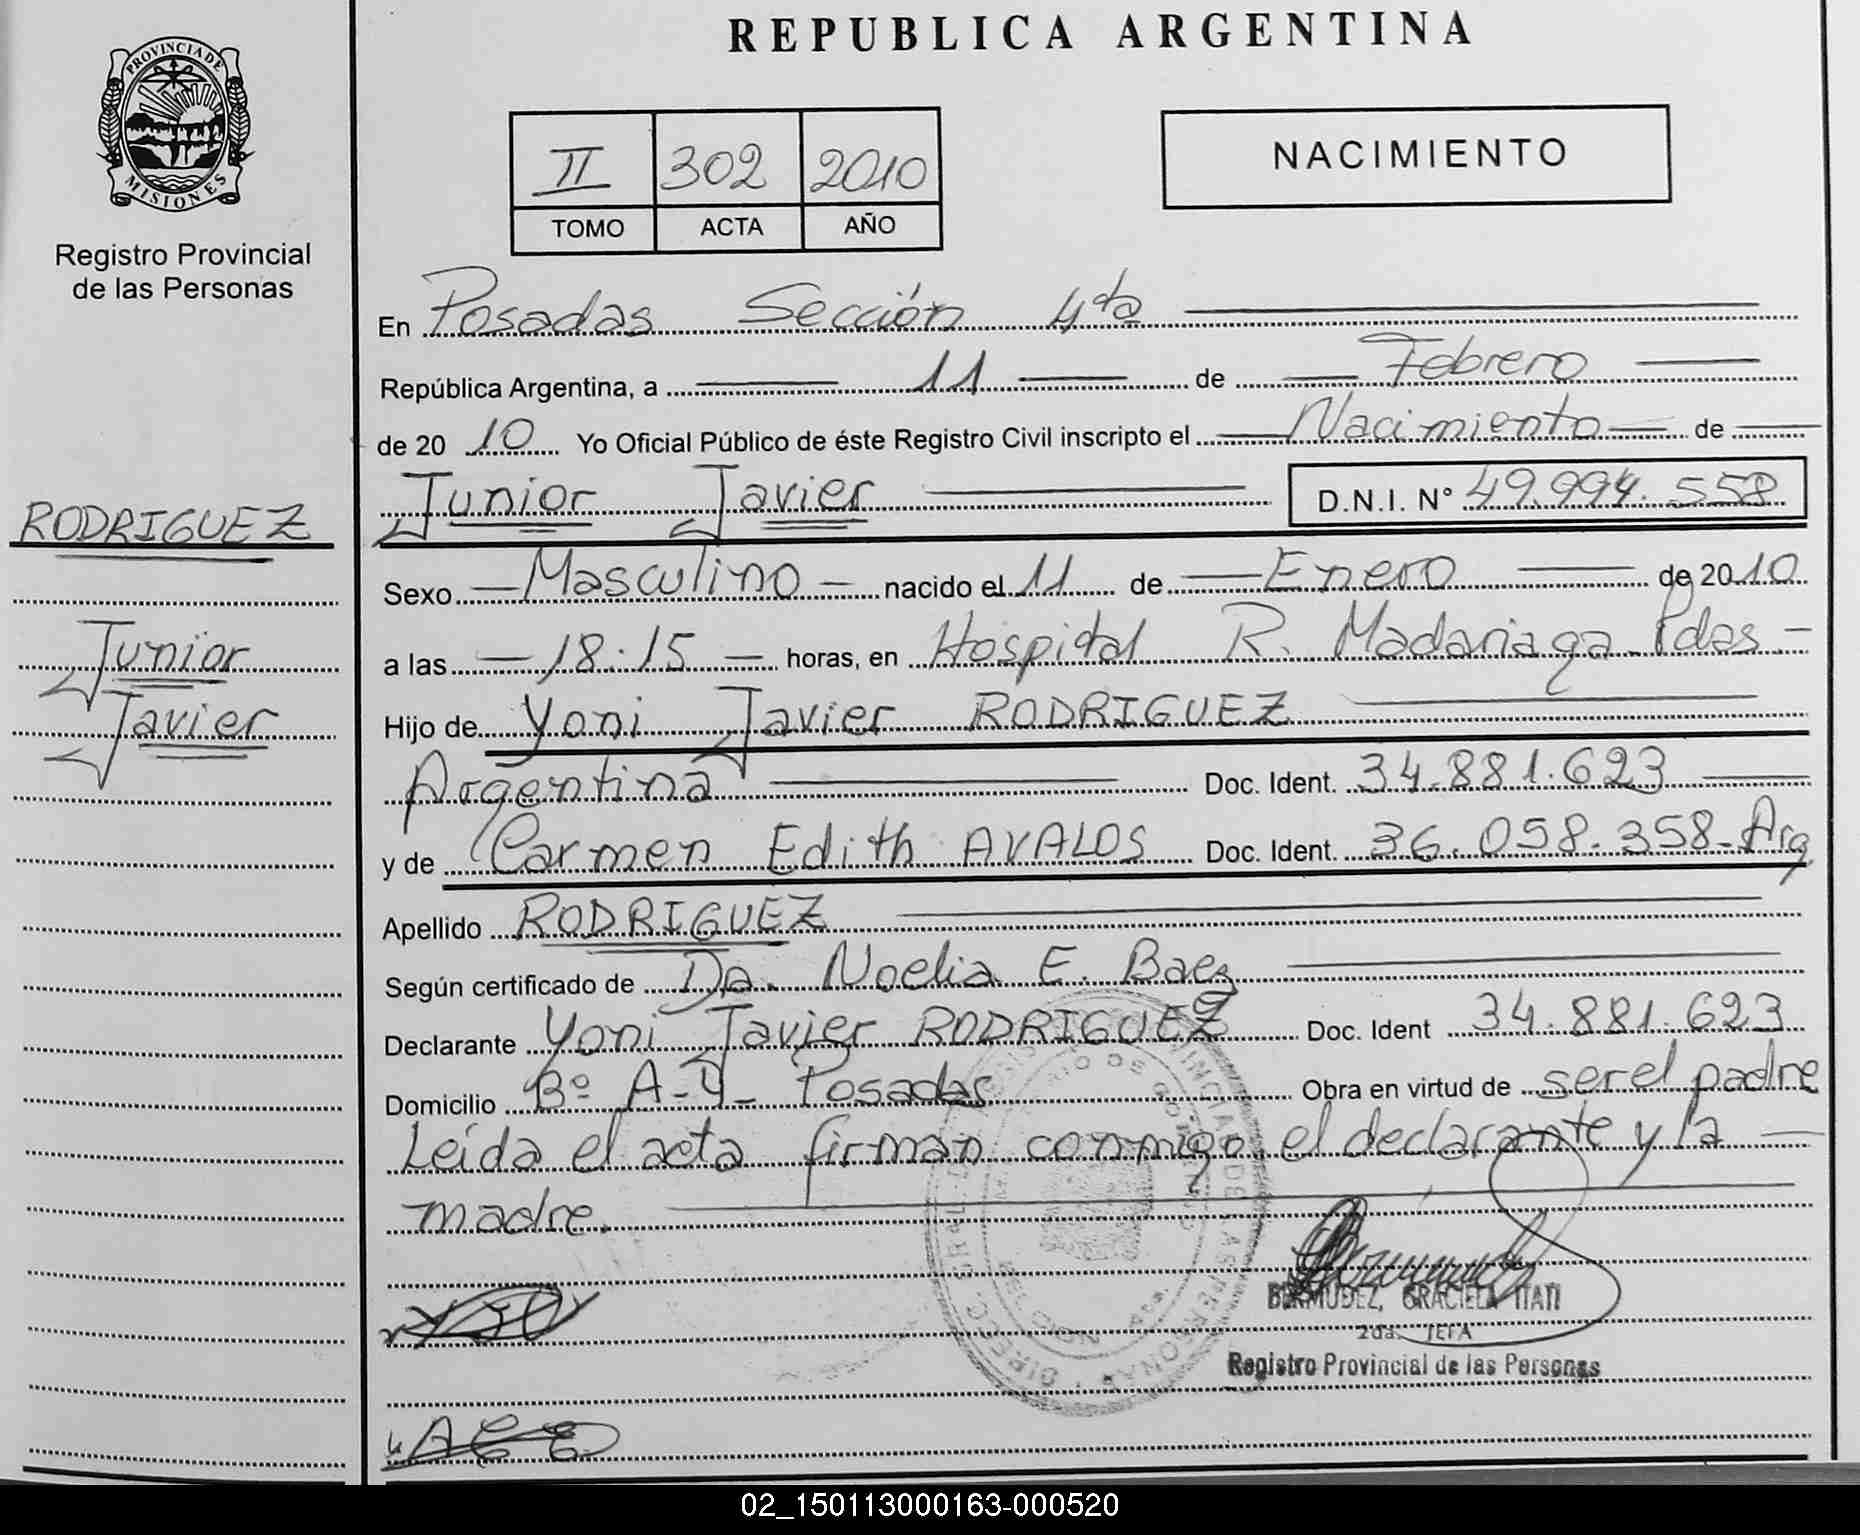 REPUBLICA ARGENTINA
PROVINCIA DE
MISIONES
Registro Provincial
de las Personas
II 302 2010
TOMO ACTA AÑO
NACIMIENTO
En Posadas Sección 4ta
República Argentina, a 11 de Febrero
de 2010 Yo Oficial Público de éste Registro Civil inscripto el Nacimiento de
Junior Javier D.N.I. N° 49.994.558
RODRIGUEZ
Junior
Javier
Sexo Masculino nacido el 11 de Enero de 2010
a las 18:15 horas, en Hospital R. Madariaga Pdas
Hijo de Yoni Javier RODRIGUEZ
Argentina Doc. Ident. 34.881.623
y de Carmen Edith AVALOS Doc. Ident. 36.058.358-Arg
Apellido RODRIGUEZ
Según certificado de Dra. Noelia E. Baez
Declarante Yoni Javier RODRIGUEZ Doc. Ident 34.881.623
Domicilio Bº A-4- Posadas Obra en virtud de ser el padre
Leída el acta firman conmigo, el declarante y la
madre.
BERMUDEZ, GRACIELA ITATI
2da. JEFA
Registro Provincial de las Personas
02_150113000163-000520